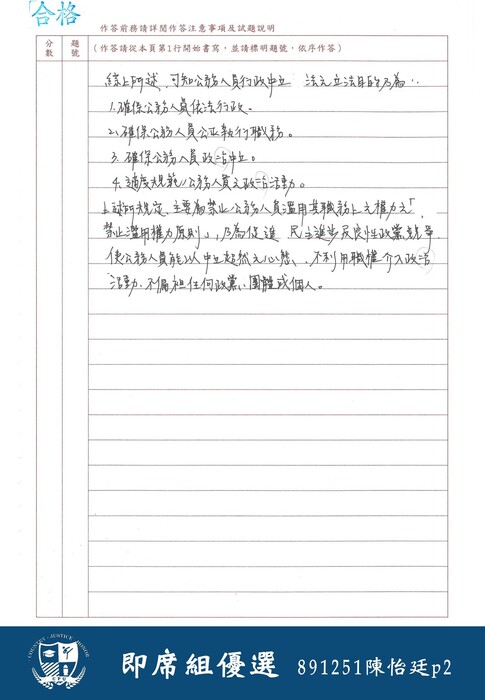 合格
作答前務請詳閱作答注意事項及試題說明
分數
題號
(作答請從本頁第1行開始書寫,並請標明題號,依序作答)
綜上所述,可知公務人員行政中立 法之立法目的乃為:
1.確保公務人員依法行政。
2.確保公務人員公正執行職務。
3.確保公務人員政治中立。
4.適度規範公務人員之政治活動。
上述所規定,主要為禁止公務人員濫用其職務上之權力之「
禁止濫用權力原則」,乃為促進 民主進步及良性政黨競爭,
使公務人員能以中立超然之心態、不利用職權介入政治
活動、不偏袒任何政黨、團體或個人。
COUNTRY · JUSTICE · HONOR
即席組優選 891251陳怡廷p2